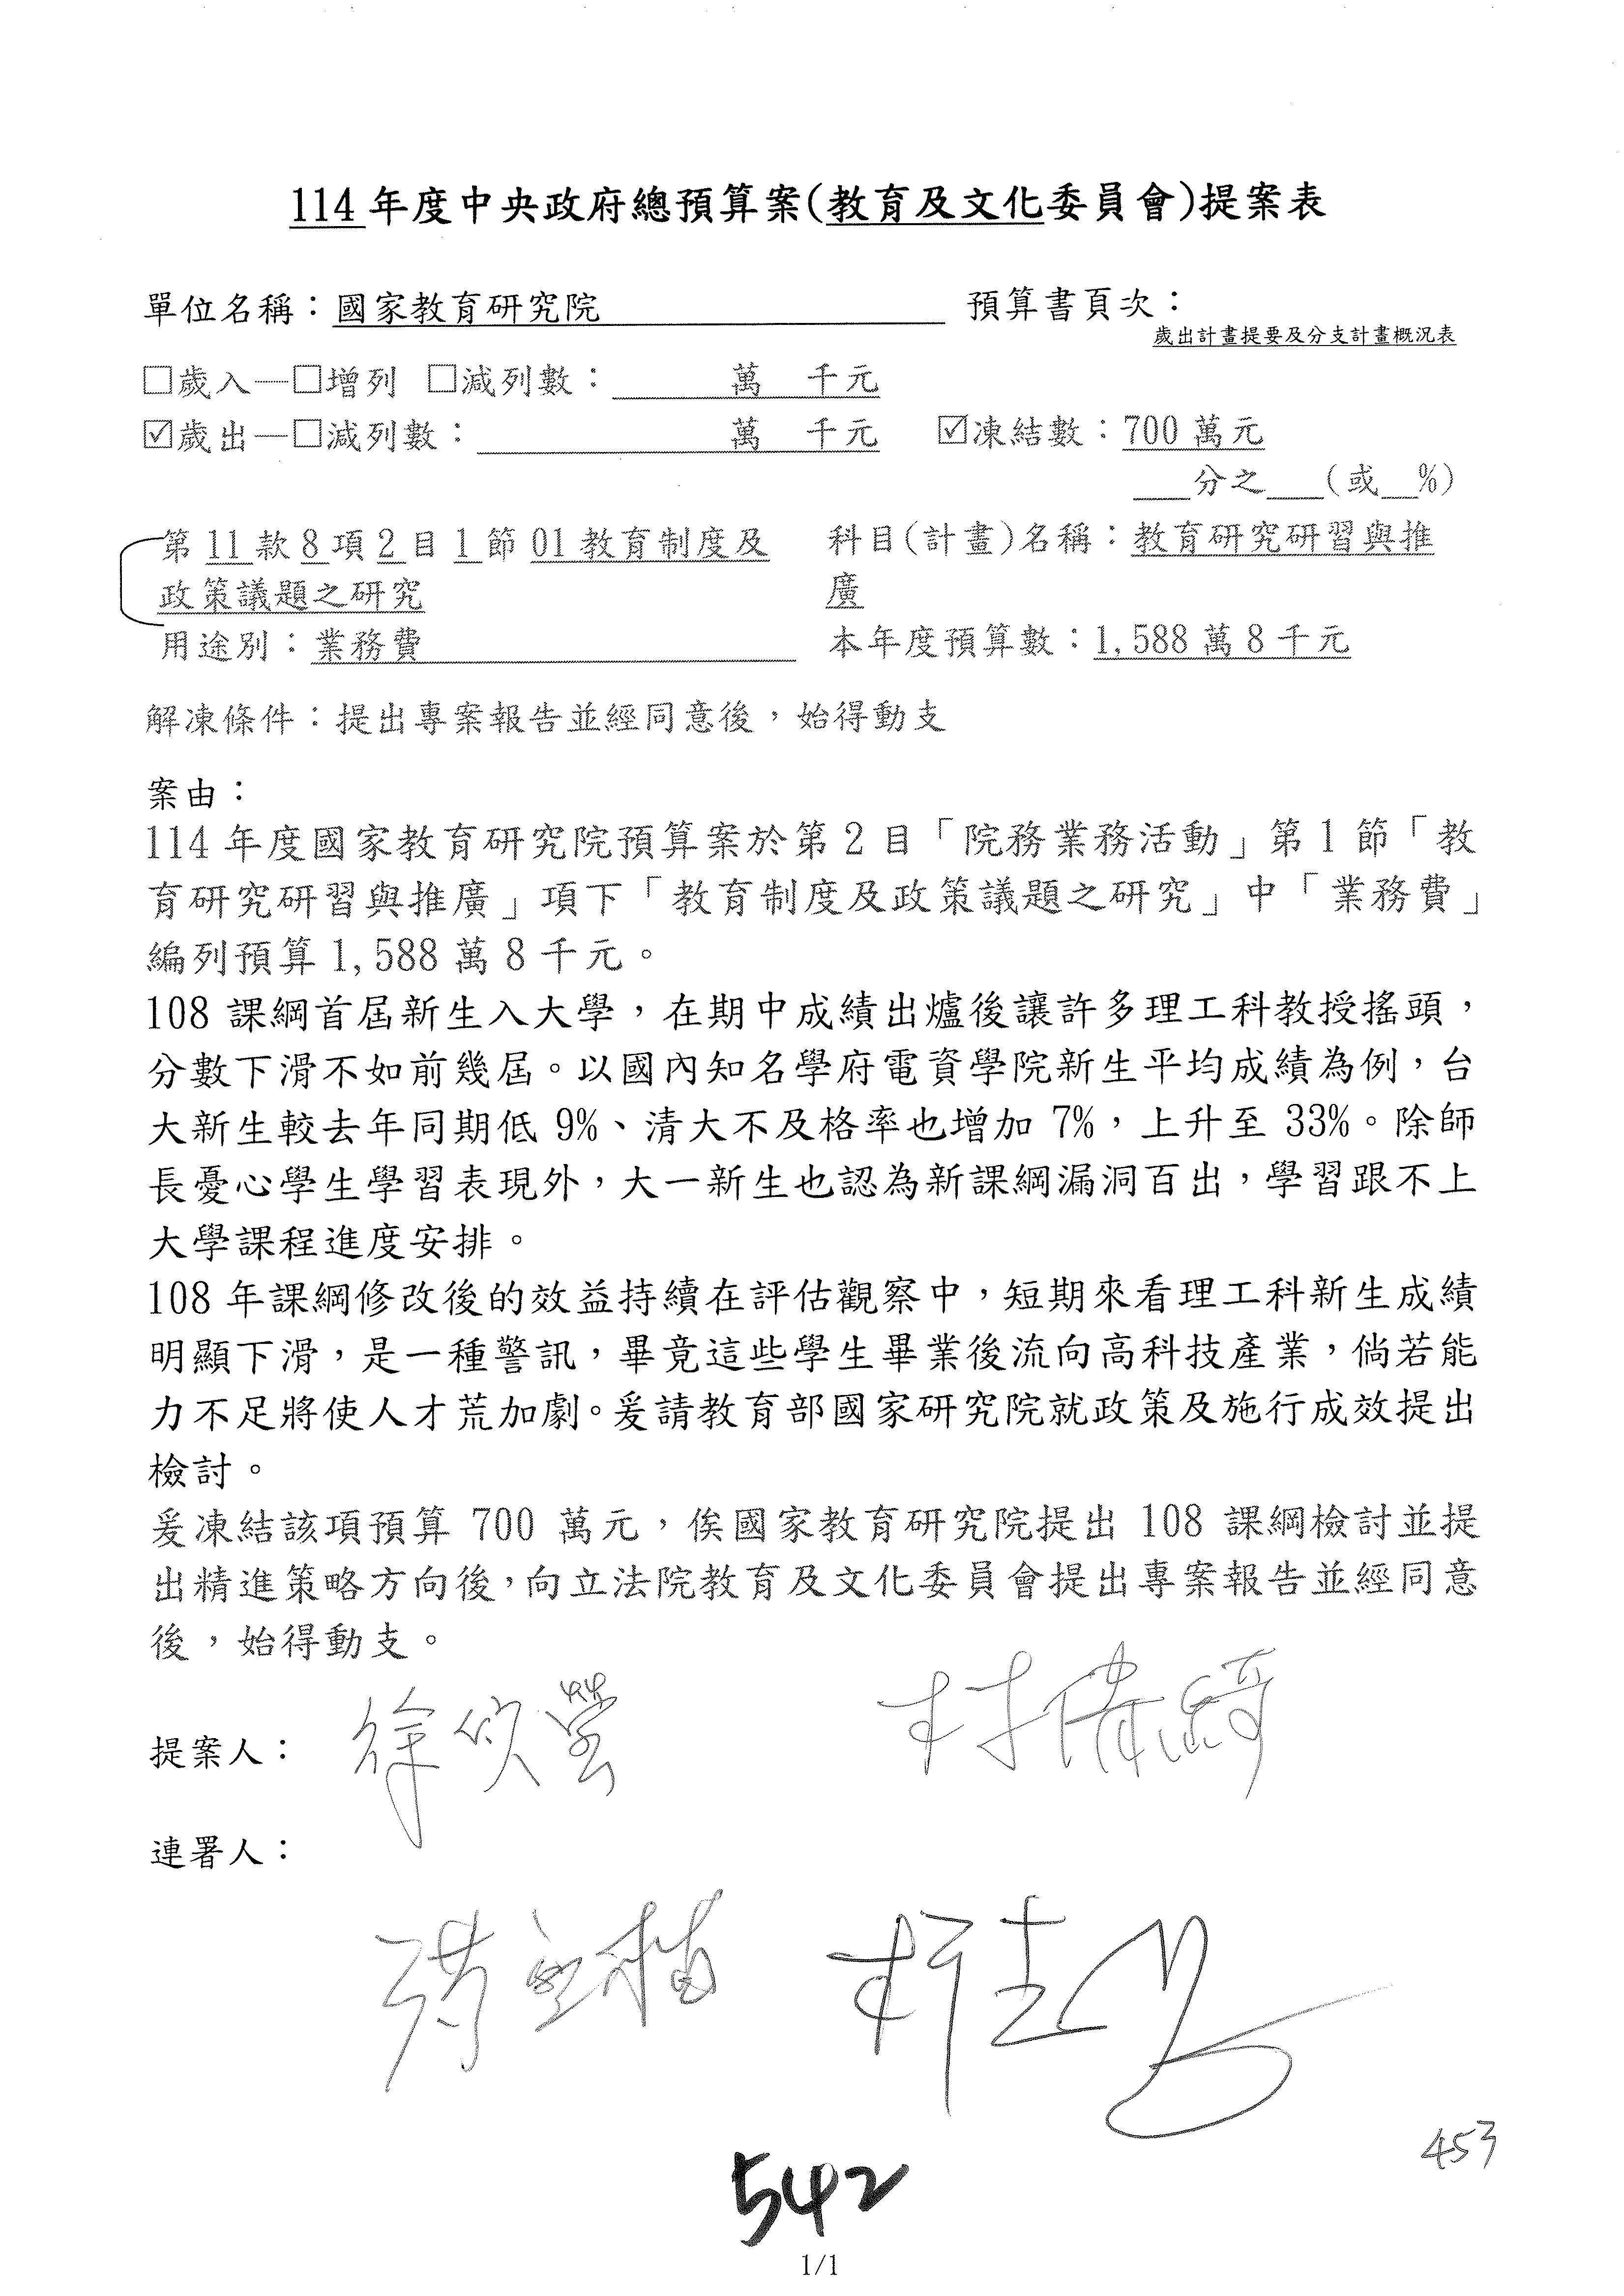 114年度中央政府總預算案(教育及文化委員會)提案表
單位名稱：國家教育研究院 預算書頁次：
歲出計畫提要及分支計畫概況表
□歲入—□增列 □減列數： 萬 千元
☑歲出—□減列數： 萬 千元 ☑凍結數：700萬元
___分之___(或__%)
第11款8項2目1節01教育制度及 科目(計畫)名稱：教育研究研習與推
政策議題之研究 廣
用途別：業務費 本年度預算數：1,588萬8千元
解凍條件：提出專案報告並經同意後，始得動支
案由：
114年度國家教育研究院預算案於第2目「院務業務活動」第1節「教
育研究研習與推廣」項下「教育制度及政策議題之研究」中「業務費」
編列預算1,588萬8千元。
108課綱首屆新生入大學，在期中成績出爐後讓許多理工科教授搖頭，
分數下滑不如前幾屆。以國內知名學府電資學院新生平均成績為例，台
大新生較去年同期低9%、清大不及格率也增加7%，上升至33%。除師
長憂心學生學習表現外，大一新生也認為新課綱漏洞百出，學習跟不上
大學課程進度安排。
108年課綱修改後的效益持續在評估觀察中，短期來看理工科新生成績
明顯下滑，是一種警訊，畢竟這些學生畢業後流向高科技產業，倘若能
力不足將使人才荒加劇。爰請教育部國家研究院就政策及施行成效提出
檢討。
爰凍結該項預算700萬元，俟國家教育研究院提出108課綱檢討並提
出精進策略方向後，向立法院教育及文化委員會提出專案報告並經同意
後，始得動支。
提案人： 徐欣瑩 林倩綺
連署人：
542
453
1/1